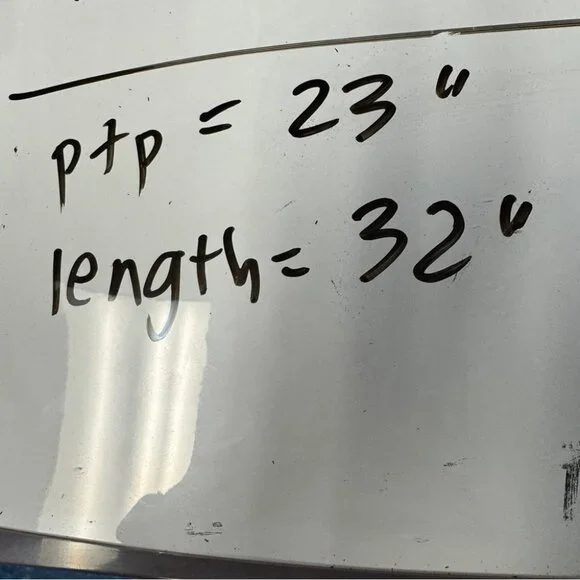 ptp = 23"
length = 32"